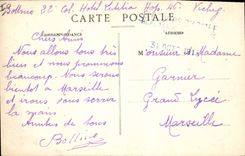 Bolline 32e Col. Hotel Lutétia Hop. 46. Vichy
CARTE POSTALE
CORRESPONDANCE
ADRESSE
Chers Amis
Nous allons tous très
bien et nous promenons
beaucoup. Nous serons
bientôt à Marseille
et irons vous serrer la
main
Amitiés de tous
Bolline
Monsieur Madame
Garnier
Grand Lycée
Marseille